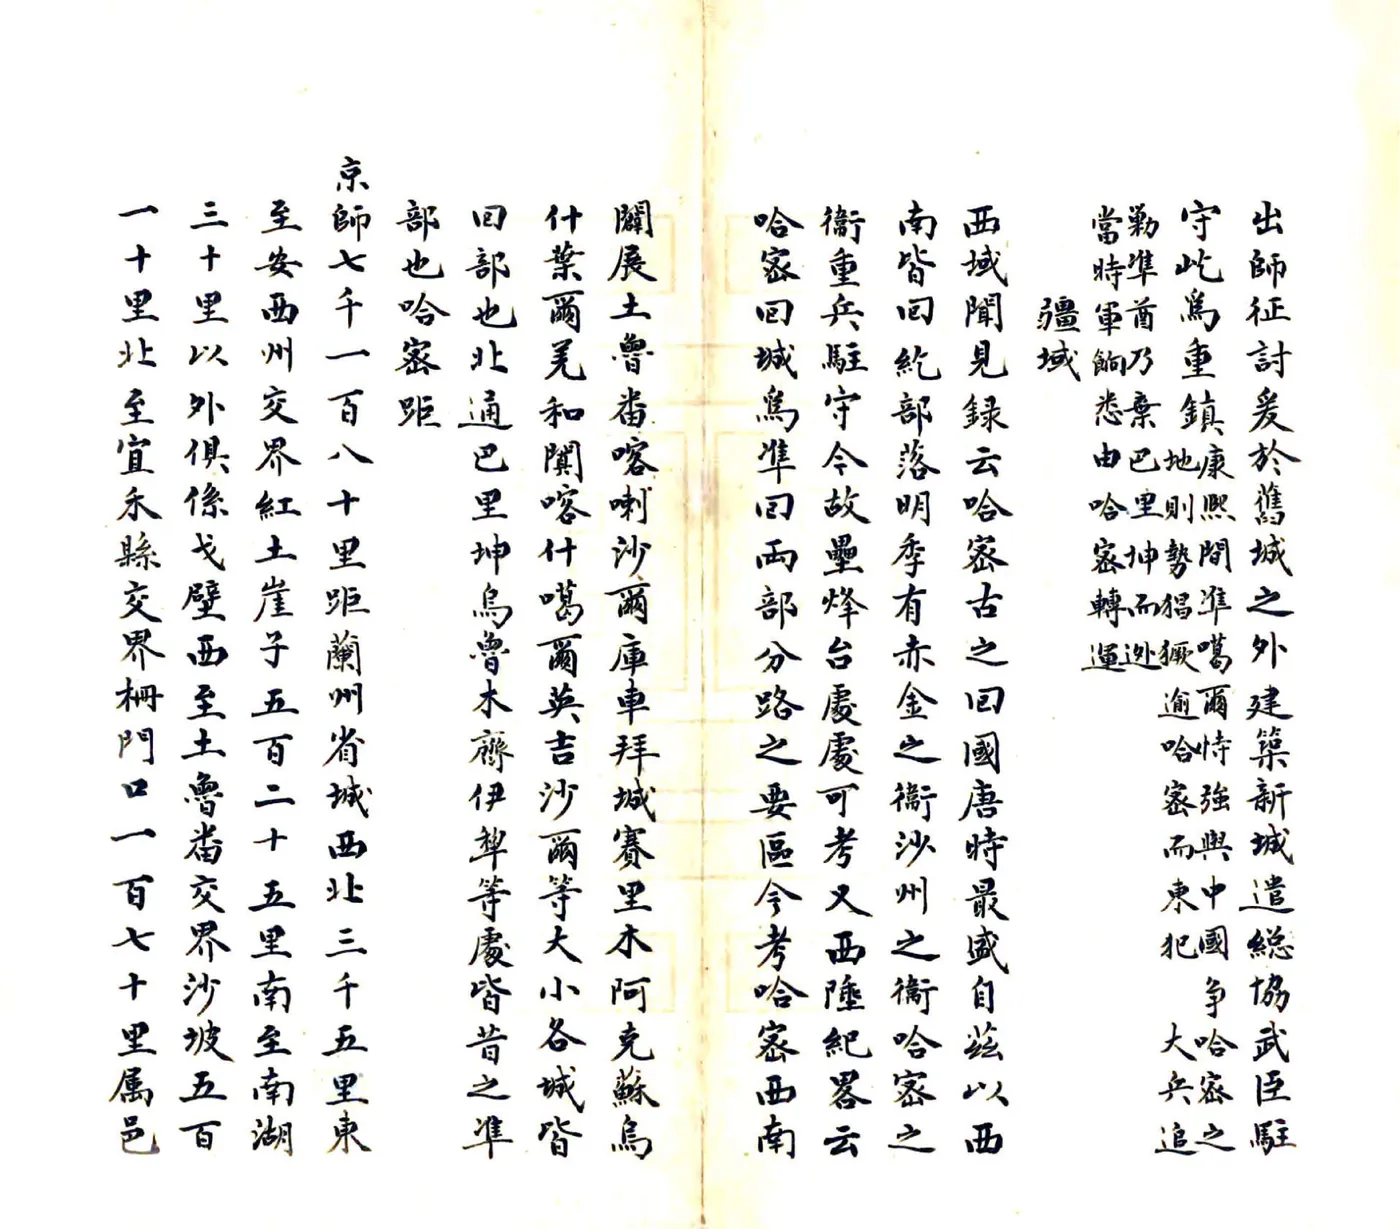 出師征討爰於舊城之外建築新城遣総協武臣駐
守此爲重鎮
康熙間準噶爾恃強與中國争哈密之
地則勢猖獗逾哈密而東犯大兵追
勦準酋乃棄巴里坤而迯
當時軍餉悉由哈密轉運
疆域
西域聞見録云哈密古之回國唐時最盛自茲以西
南皆回紇部落明季有赤金之衞沙州之衞哈密之
衞重兵駐守今故壘烽台處處可考又西陲紀畧云
哈密回城爲準回両部分路之要區今考哈密西南
闢展土魯番喀喇沙爾庫車拜城賽里木阿克蘇烏
什葉爾羌和闐喀什噶爾英吉沙爾等大小各城皆
回部也北通巴里坤烏魯木齊伊犂等處皆昔之準
部也哈密距
京師七千一百八十里距蘭州省城西北三千五里東
至安西州交界紅土崖子五百二十五里南至南湖
三十里以外俱係戈壁西至土魯番交界沙坡五百
一十里北至宜禾縣交界柵門口一百七十里属邑